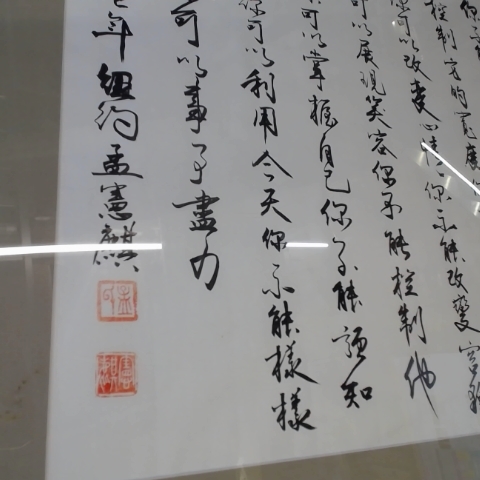 控制它的寬度
可以改變心情你不能改變容貌
可以展現笑容你不能控制他
可以掌握自己你不能預知
可以利用今天你不能樣樣
可以事事盡力
年紐約孟憲麒